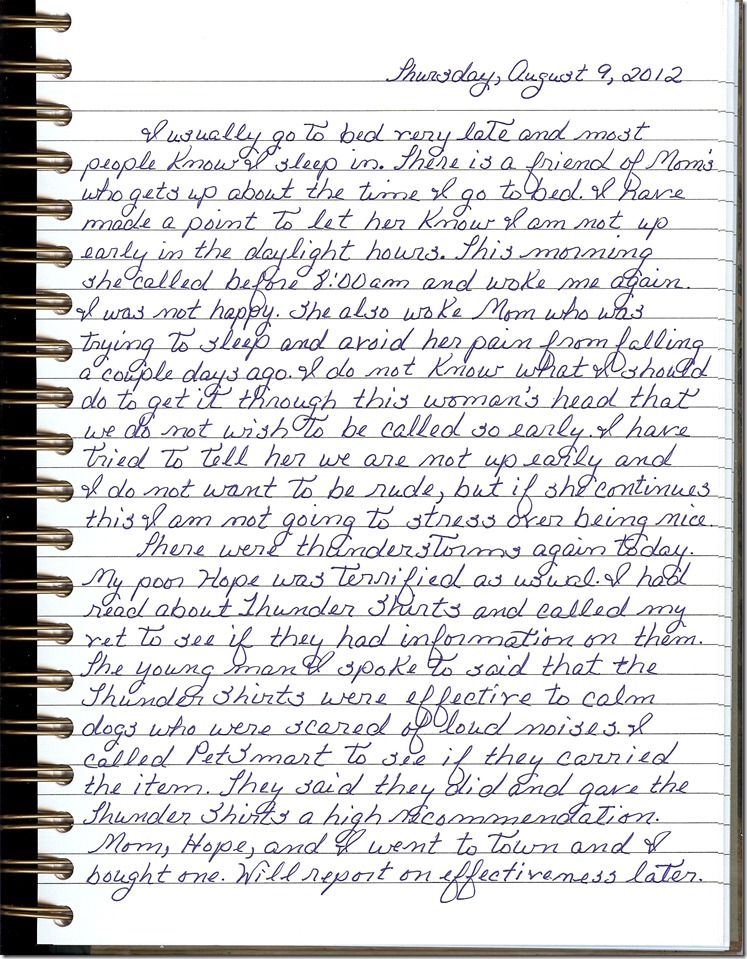 Thursday, August 9, 2012
I usually go to bed very late and most
people know I sleep in. There is a friend of Mom's
who gets up about the time I go to bed. I have
made a point to let her know I am not up
early in the daylight hours. This morning
she called before 8:00 am and woke me again.
I was not happy. She also woke Mom who was
trying to sleep and avoid her pain from falling
a couple days ago. I do not know what I should
do to get it through this woman's head that
we do not wish to be called so early. I have
tried to tell her we are not up early and
I do not want to be rude, but if she continues
this I am not going to stress over being nice.
There were thunderstorms again today.
My poor Hope was terrified as usual. I had
read about Thunder Shirts and called my
vet to see if they had information on them.
The young man I spoke to said that the
Thunder Shirts were effective to calm
dogs who were scared of loud noises. I
called PetSmart to see if they carried
the item. They said they did and gave the
Thunder Shirts a high recommendation.
Mom, Hope, and I went to town and I
bought one. Will report on effectiveness later.